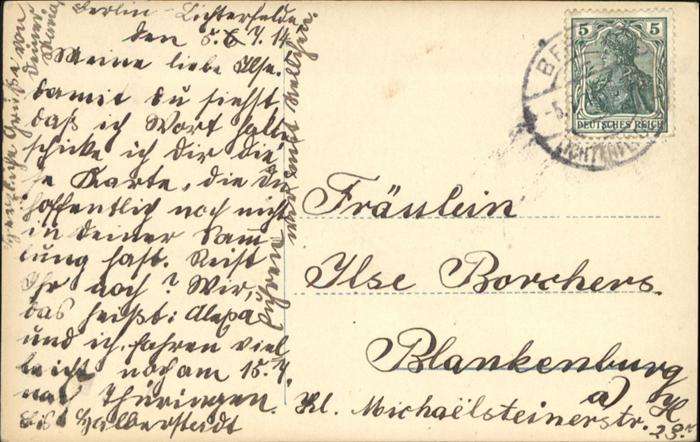 Berlin-Lichterfelde
den 5. 7. 14
Meine liebe Ilse.
Damit Du siehst,
daß ich Wort halte
schicke ich Dir die-
se Karte, die Du
hoffentlich noch nicht
in Deiner Samm
lung hast. Reist
Ihr noch? Wir,
das heißt:
und ich fahren viel
leicht noch am 15. 7.
nach Thüringen.
Bis Halberstadt
fahren wir
Herzliche Grüße von
Deiner
5 5
DEUTSCHES REICH
Fräulein
Ilse Borchers.
Blankenburg
a/H
Kl. Michaëlsteinerstr.
23.